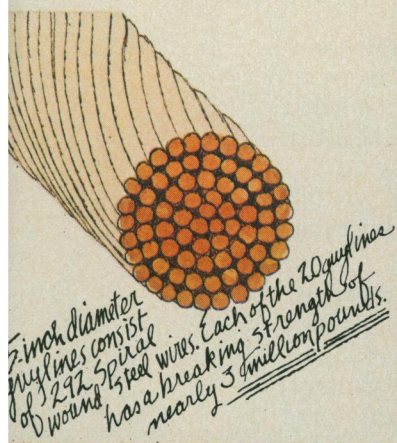 5-inch diameter
guylines consist
of 292 Spiral
wound steel wires. Each of the 20 guylines
has a breaking strength of
nearly 3 million pounds.